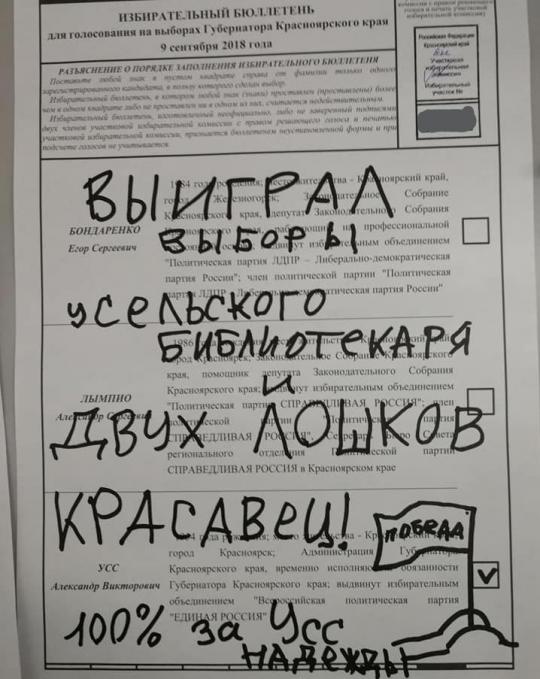 ИЗБИРАТЕЛЬНЫЙ БЮЛЛЕТЕНЬ
для голосования на выборах Губернатора Красноярского края
9 сентября 2018 года
РАЗЪЯСНЕНИЕ О ПОРЯДКЕ ЗАПОЛНЕНИЯ ИЗБИРАТЕЛЬНОГО БЮЛЛЕТЕНЯ
Поставьте любой знак в пустом квадрате справа от фамилии только одного
зарегистрированного кандидата, в пользу которого сделан выбор.
Избирательный бюллетень, в котором любой знак (знаки) проставлен (проставлены) более
чем в одном квадрате либо не проставлен ни в одном из них, считается недействительным.
Избирательный бюллетень, изготовленный неофициально, либо не заверенный подписями
двух членов участковой избирательной комиссии с правом решающего голоса и печатью
участковой избирательной комиссии, признается бюллетенем неустановленной формы и при
подсчете голосов не учитывается.
комиссии с правом решающего
голоса и печать участковой
избирательной комиссии)
Российская Федерация
Красноярский край
Участковая
избирательная
комиссия
Избирательный
участок №
ВЫИГРАЛ
ВЫБОРЫ
У СЕЛЬСКОГО
БИБЛИОТЕКАРЯ
И
ДВУХ ЛОШКОВ
КРАСАВЕЦ!
ПОБЕДА
100% за Усс
НАДЕЖДЫ
БОНДАРЕНКО
Егор Сергеевич
1984 года рождения; место жительства - Красноярский край,
город Железногорск; Законодательное Собрание
Красноярского края, депутат Законодательного Собрания
Красноярского края, на профессиональной
выдвинут избирательным объединением
"Политическая партия ЛДПР – Либерально-демократическая
партия России"; член политической партии "Политическая
партия ЛДПР - Либерально-демократическая партия России"
ЛЫМПИО
Александр Сергеевич
1986 года жительства
город Красноярск; Законодательное Собрание
края, помощник депутата Законодательного Собрания
Красноярского края; выдвинут избирательным объединением
"Политическая партия СПРАВЕДЛИВАЯ РОССИЯ"; член
политической партии "Политическая партия
СПРАВЕДЛИВАЯ РОССИЯ", Секретарь Бюро Совета
регионального отделения Политической партии
СПРАВЕДЛИВАЯ РОССИЯ в Красноярском крае
УСС
Александр Викторович
года рождения; место жительства - Красноярский край,
город Красноярск; Администрация Губернатора
Красноярского края, временно исполняющий обязанности
Губернатора Красноярского края; выдвинут избирательным
объединением "Всероссийская политическая партия
"ЕДИНАЯ РОССИЯ"